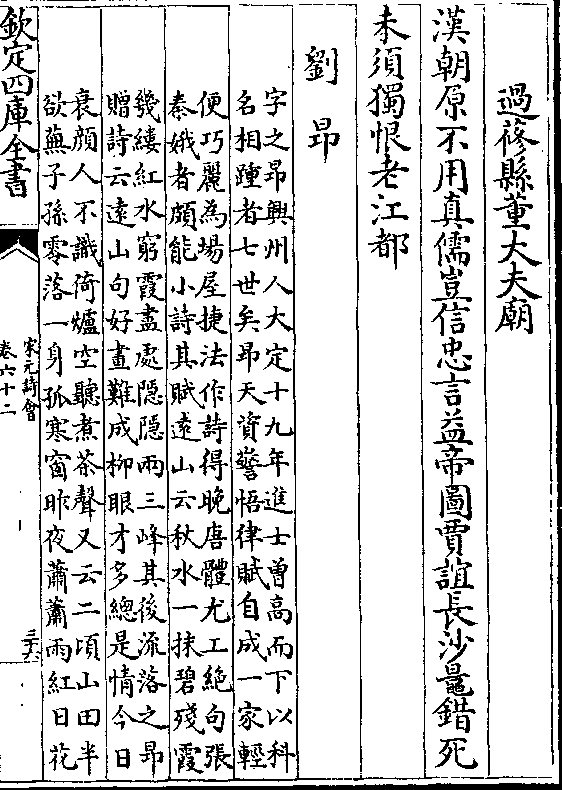 過蓚縣董大夫廟
漢朝原不用真儒豈信忠言益帝圖賈誼長沙鼂錯死
未須獨恨老江都
劉昂
字之昂興州人大定十九年進士曾高而下以科
名相踵者七世矣昂天資警悟律賦自成一家輕
便巧麗為場屋捷法作詩得晚唐體尤工絶句張
秦娥者頗能小詩其賦遠山云秋水一抹碧殘霞
幾縷紅水窮霞盡處隐隐兩三峰其後流落之昂
贈詩云遠山句好畫難成柳眼才多總是情今日
衰顔人不識倚爐空聽煮茶聲又云二頃山田半
欲蕪子孫零落一身孤寒窗昨夜蕭蕭雨紅日花
欽定四庫全書
宋元詩會
卷六十二